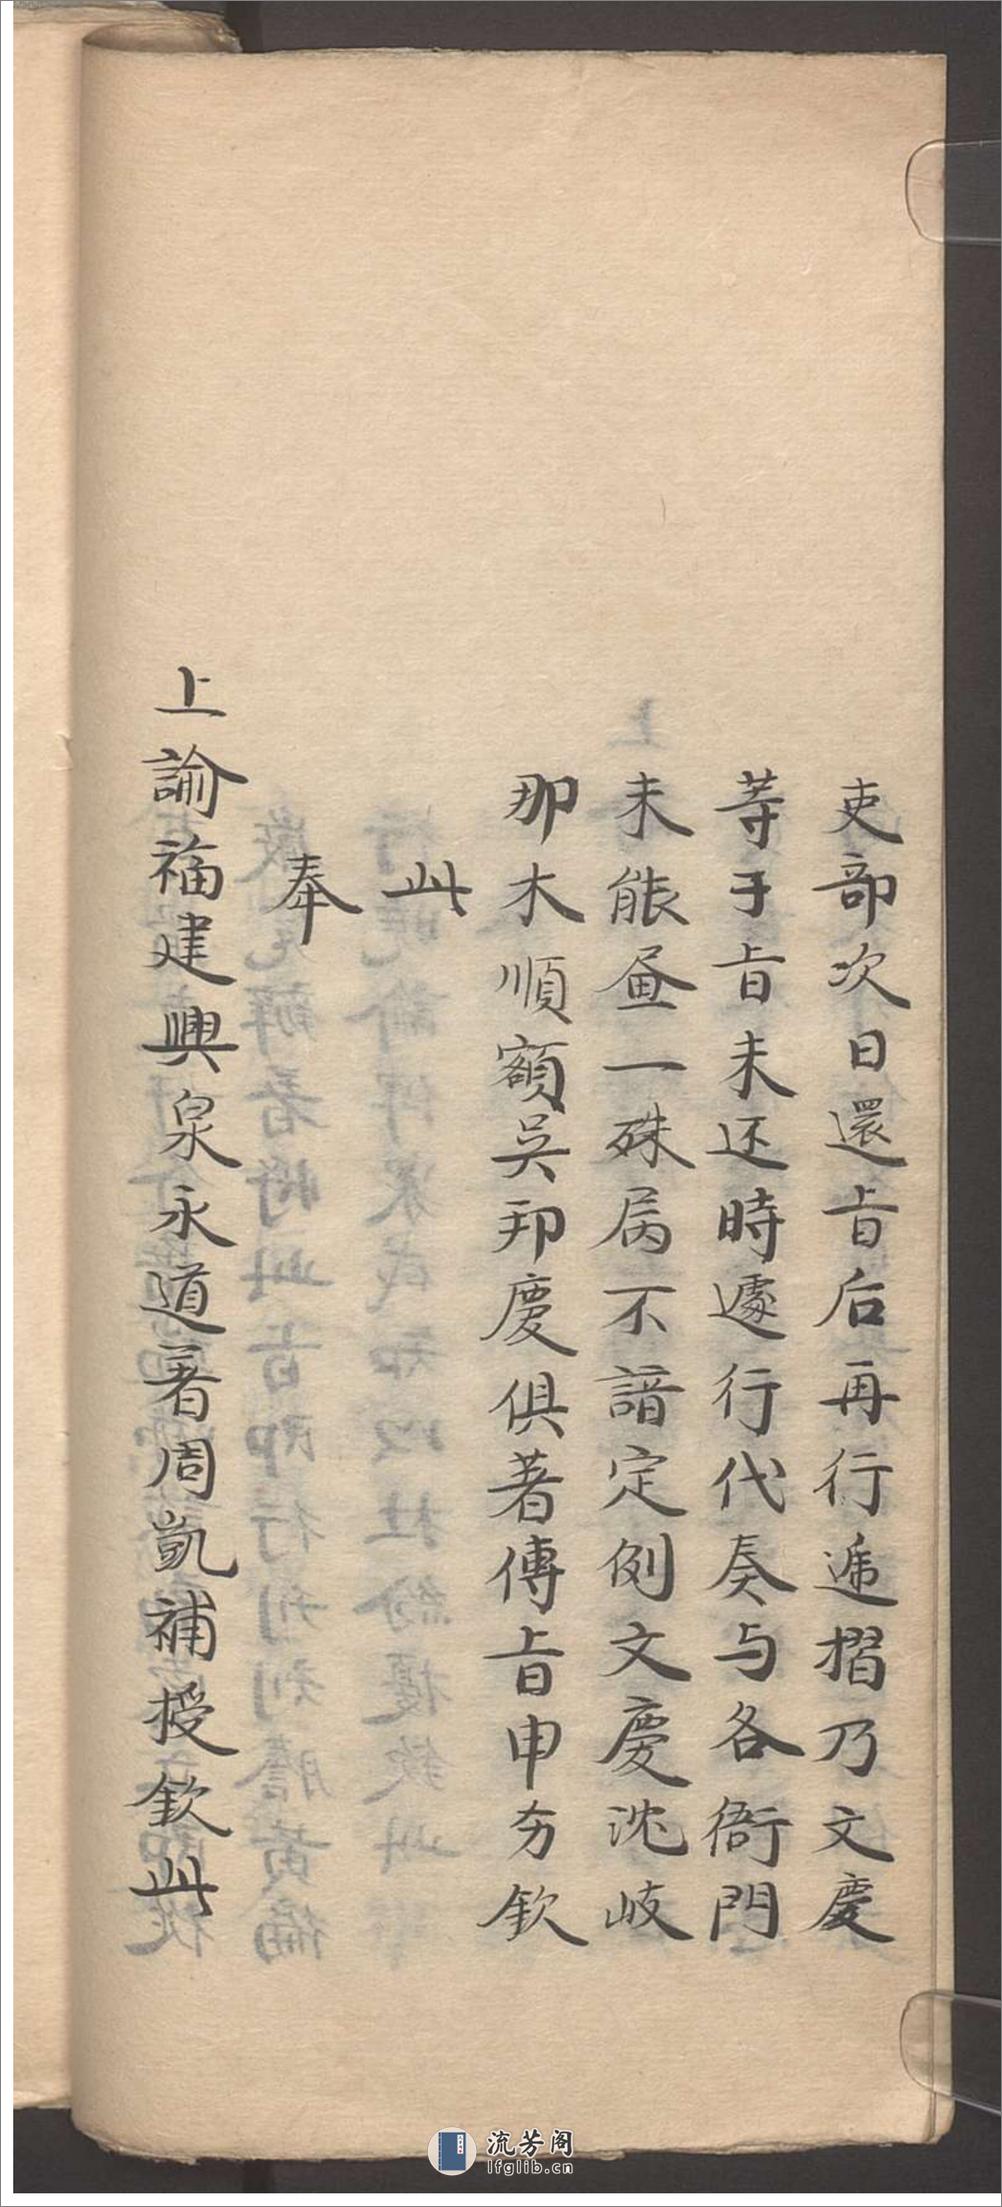 吏部次日還旨后再行遞摺乃文慶
等于旨未还時遽行代奏与各衙門
未能画一殊属不諳定例文慶沈岐
那木順額吳邦慶俱著傳旨申夯欽
此
奉
上諭福建興泉永道著周凱補授欽此
流芳阁
lfglib.cn